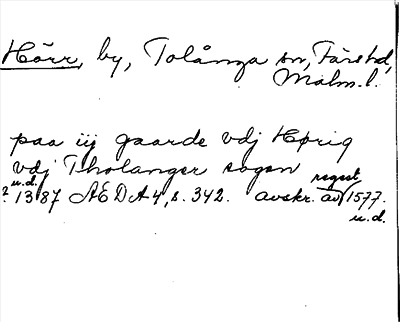 Hörr, by, Tolånga sn, Färs hd,
Malm. l.
paa iij gaarde vdj Hørig
vdj Tholanger sogen
u.d.
? 1387 ÆDA 4, s. 342. avskr. av regest 1577.
u.d.